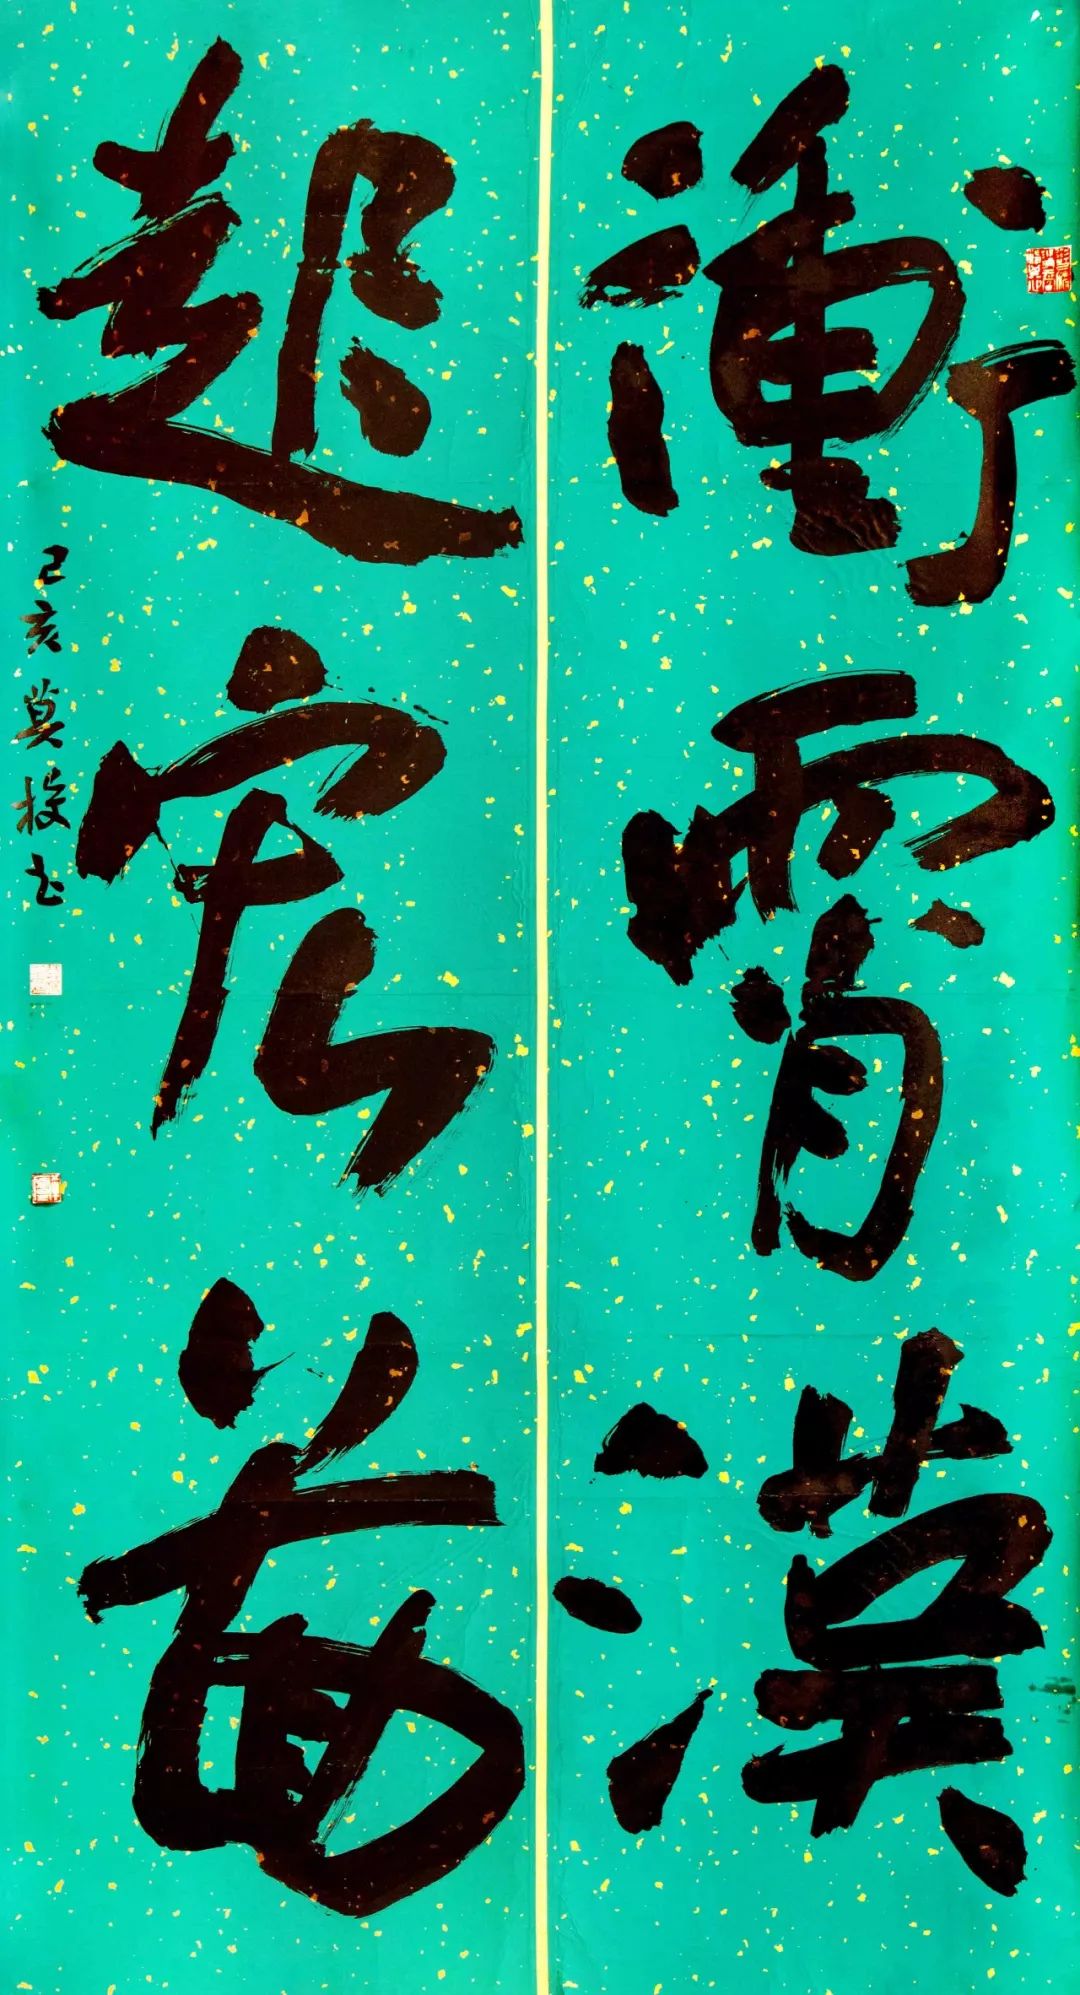 衝霄漢
起宏圖
己亥莫